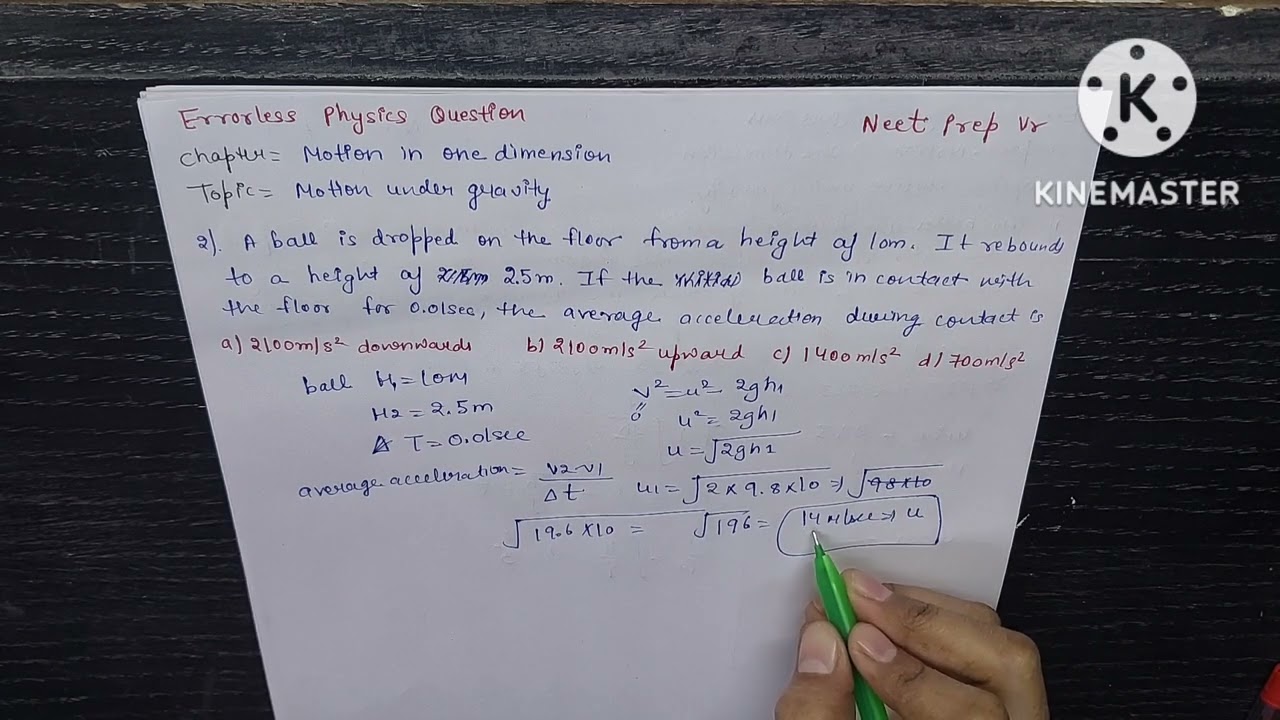 Errorless Physics Question
Neet Prep Vr
K
KINEMASTER
Chapter= Motion in one dimension
Topic= Motion under gravity
2). A ball is dropped on the floor from a height of 10m. It rebounds
to a height of 2.5m. If the ball is in contact with
the floor for 0.01sec, the average acceleration during contact is
a) 2100m/s² downwards b) 2100m/s² upward c) 1400m/s² d) 700m/s²
ball H₁=10m
H2=2.5m
Δ T=0.01sec
average acceleration= v2-v1
Δt
v²=u²- 2gh1
0
u²=2gh1
u=√2gh1
u1=√2×9.8×10 ⇒ √98×10
√19.6×10 = √196= 14 m/sec ⇒ u